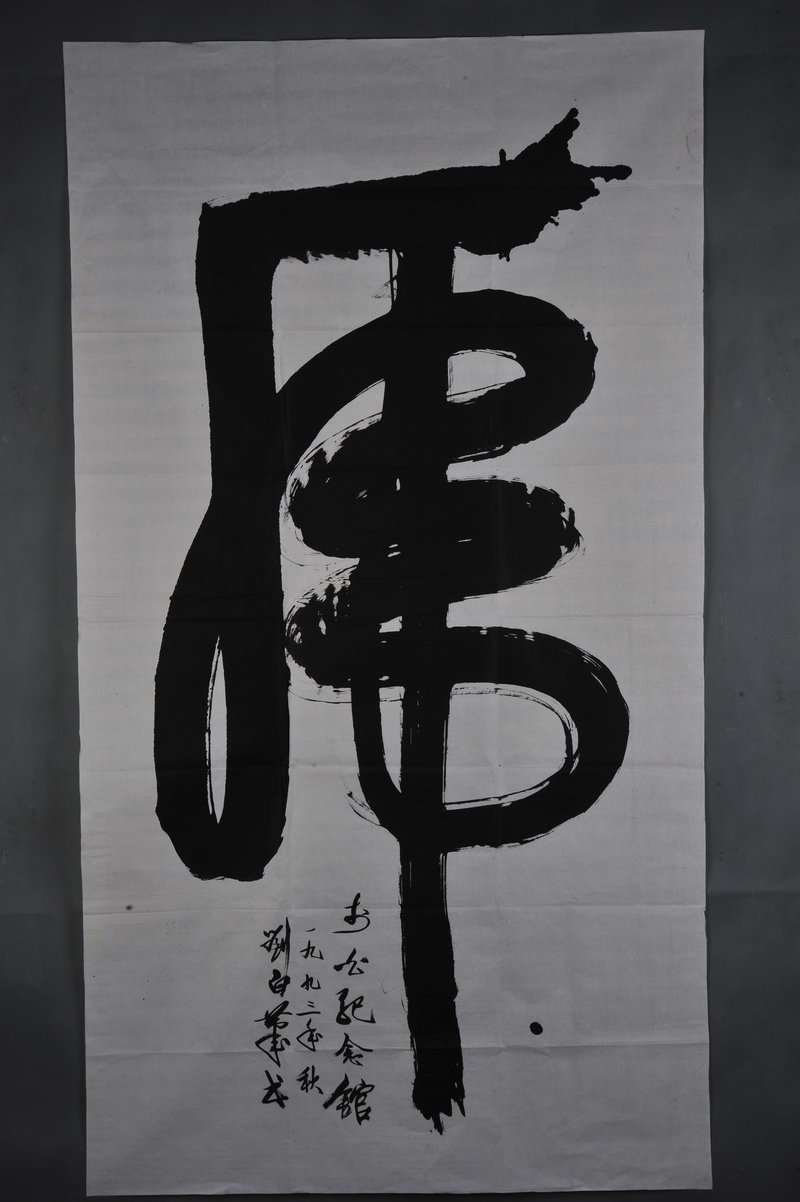 虎
公紀念館
一九九三年秋
劉白